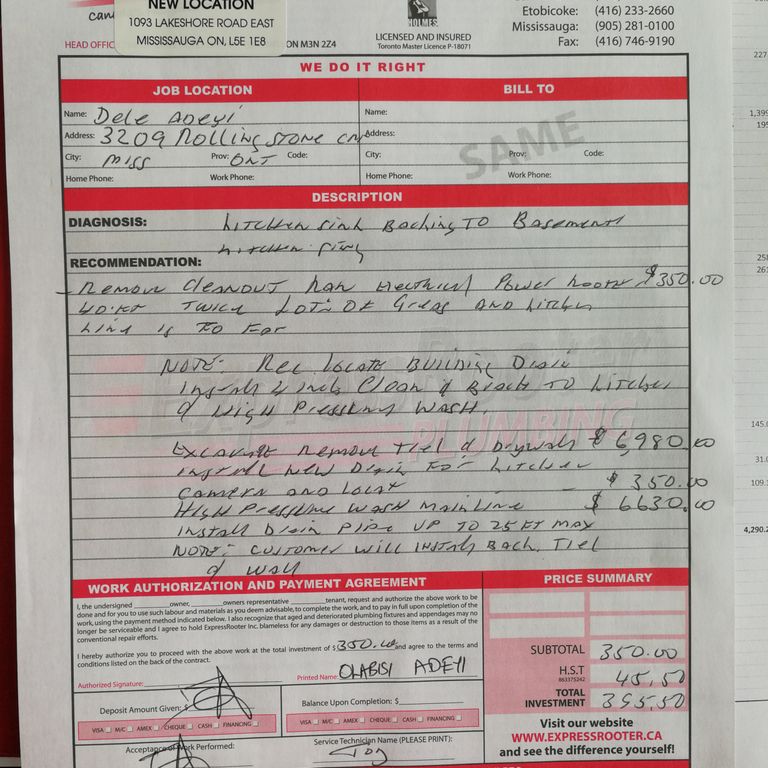 NEW LOCATION
1093 LAKESHORE ROAD EAST
MISSISSAUGA ON, L5E 1E8
HEAD OFFIC
ON M3N 2Z4
HOLMES
LICENSED AND INSURED
Toronto Master Licence P-18071
Etobicoke: (416) 233-2660
Mississauga: (905) 281-0100
Fax: (416) 746-9190
WE DO IT RIGHT
JOB LOCATION
BILL TO
Name: Dele Adeyi
Name:
Address: 3209 Rolling Stone
Address:
SAME
City: Miss Prov: ONT Code:
City: Prov: Code:
Home Phone: Work Phone:
Home Phone: Work Phone:
DESCRIPTION
DIAGNOSIS: Kitchen Sink Backing TO Basement
Kitchen
RECOMMENDATION:
- Remove Cleanout Ran Electrical Power Rooter $350.00
40 FT Twice Lots OF Greas AND Kitchen
Line is To Far
NOTE: Rec Locate Building Drain
Install 4 inch Clean & Back TO Kitchen
& High Pressure Wash.
Excavate Remove Tiel & Drywall $6,980.00
Install New Drain For Kitchen
Camera AND Locat - $350.00
High Pressure Wash Mainline $6630.00
Install Drain Pipe UP TO 25 FT MAX
NOTE: Customer Will Install Back Tiel
& Wall
PLUMBING
WORK AUTHORIZATION AND PAYMENT AGREEMENT
I, the undersigned ____owner, ____owners representative ____tenant, request and authorize the above work to be
done and for you to use such labour and materials as you deem advisable, to complete the work, and to pay in full upon completion of the
work, using the payment method indicated below. I also recognize that aged and deteriorated plumbing fixtures and appendages may no
longer be serviceable and I agree to hold ExpressRooter Inc. blameless for any damages or destruction to those items as a result of the
conventional repair efforts.
I hereby authorize you to proceed with the above work at the total investment of $350.00 and agree to the terms and
conditions listed on the back of the contract.
Authorized Signature:
Printed Name: OLABISI ADEYI
Deposit Amount Given: $
Balance Upon Completion: $
VISA M/C AMEX CHEQUE CASH FINANCING
VISA M/C AMEX CHEQUE CASH FINANCING
Acceptance of Work Performed:
Service Technician Name (PLEASE PRINT):
PRICE SUMMARY
SUBTOTAL 350.00
H.S.T 45.50
863375242
TOTAL INVESTMENT 395.50
Visit our website
WWW.EXPRESSROOTER.CA
and see the difference yourself!
227
1,399
195
258
261
145.0
31.0
109.
4,290.2